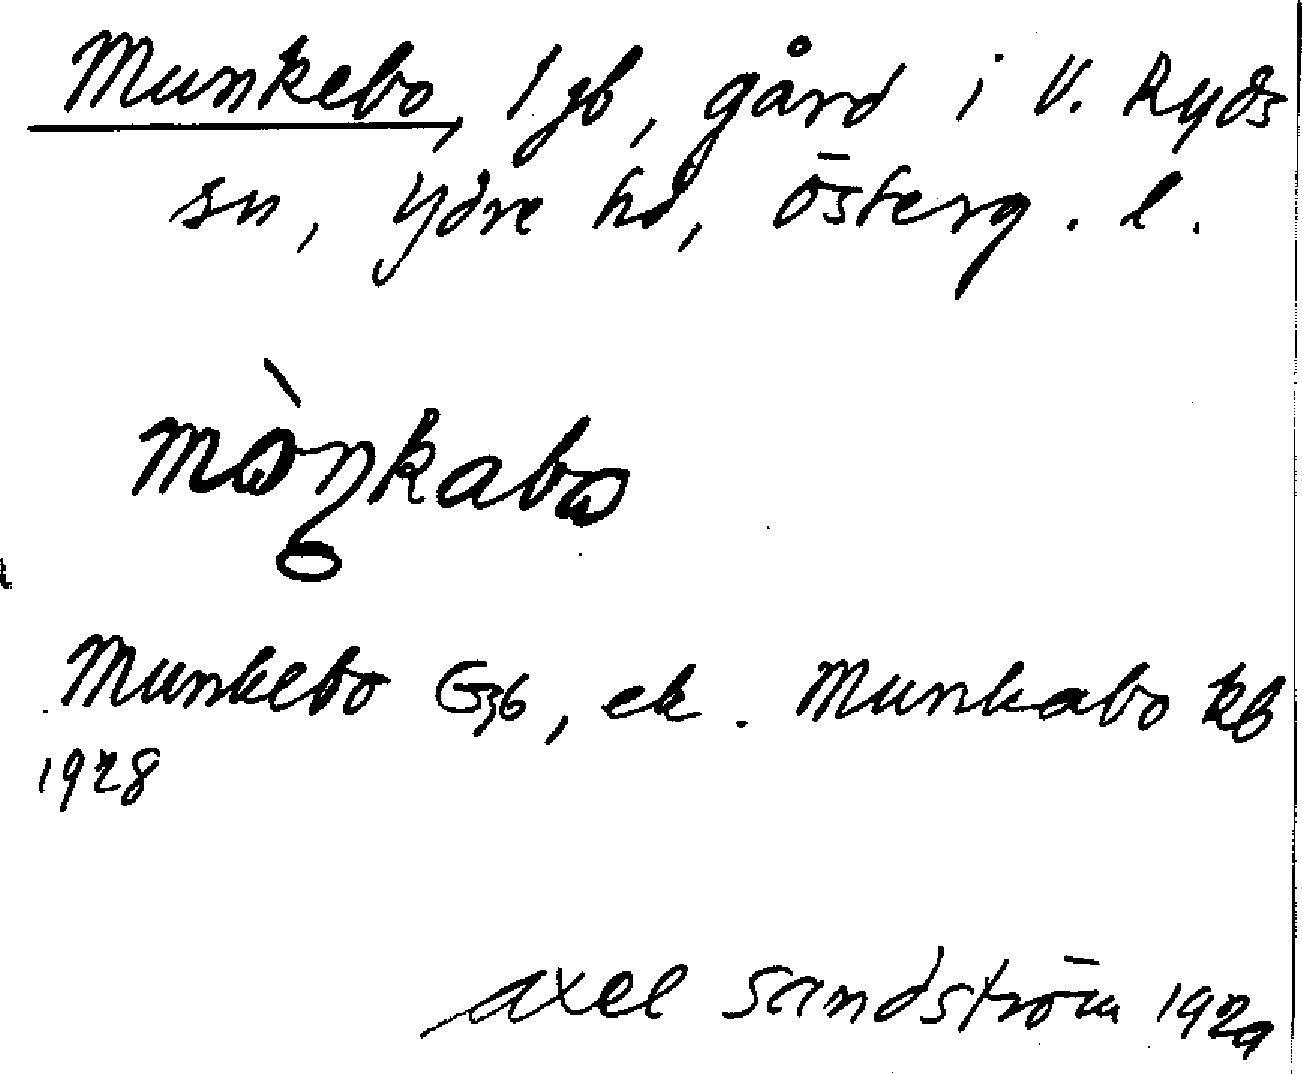 Munkebo, 1 gb, gård i V. Ryds
sn, Ydre hd, Österg. l.
mὰŋkabɷ
Munkebo Gjb, ek. Munkabo kb
1928
Axel Sandström 1929